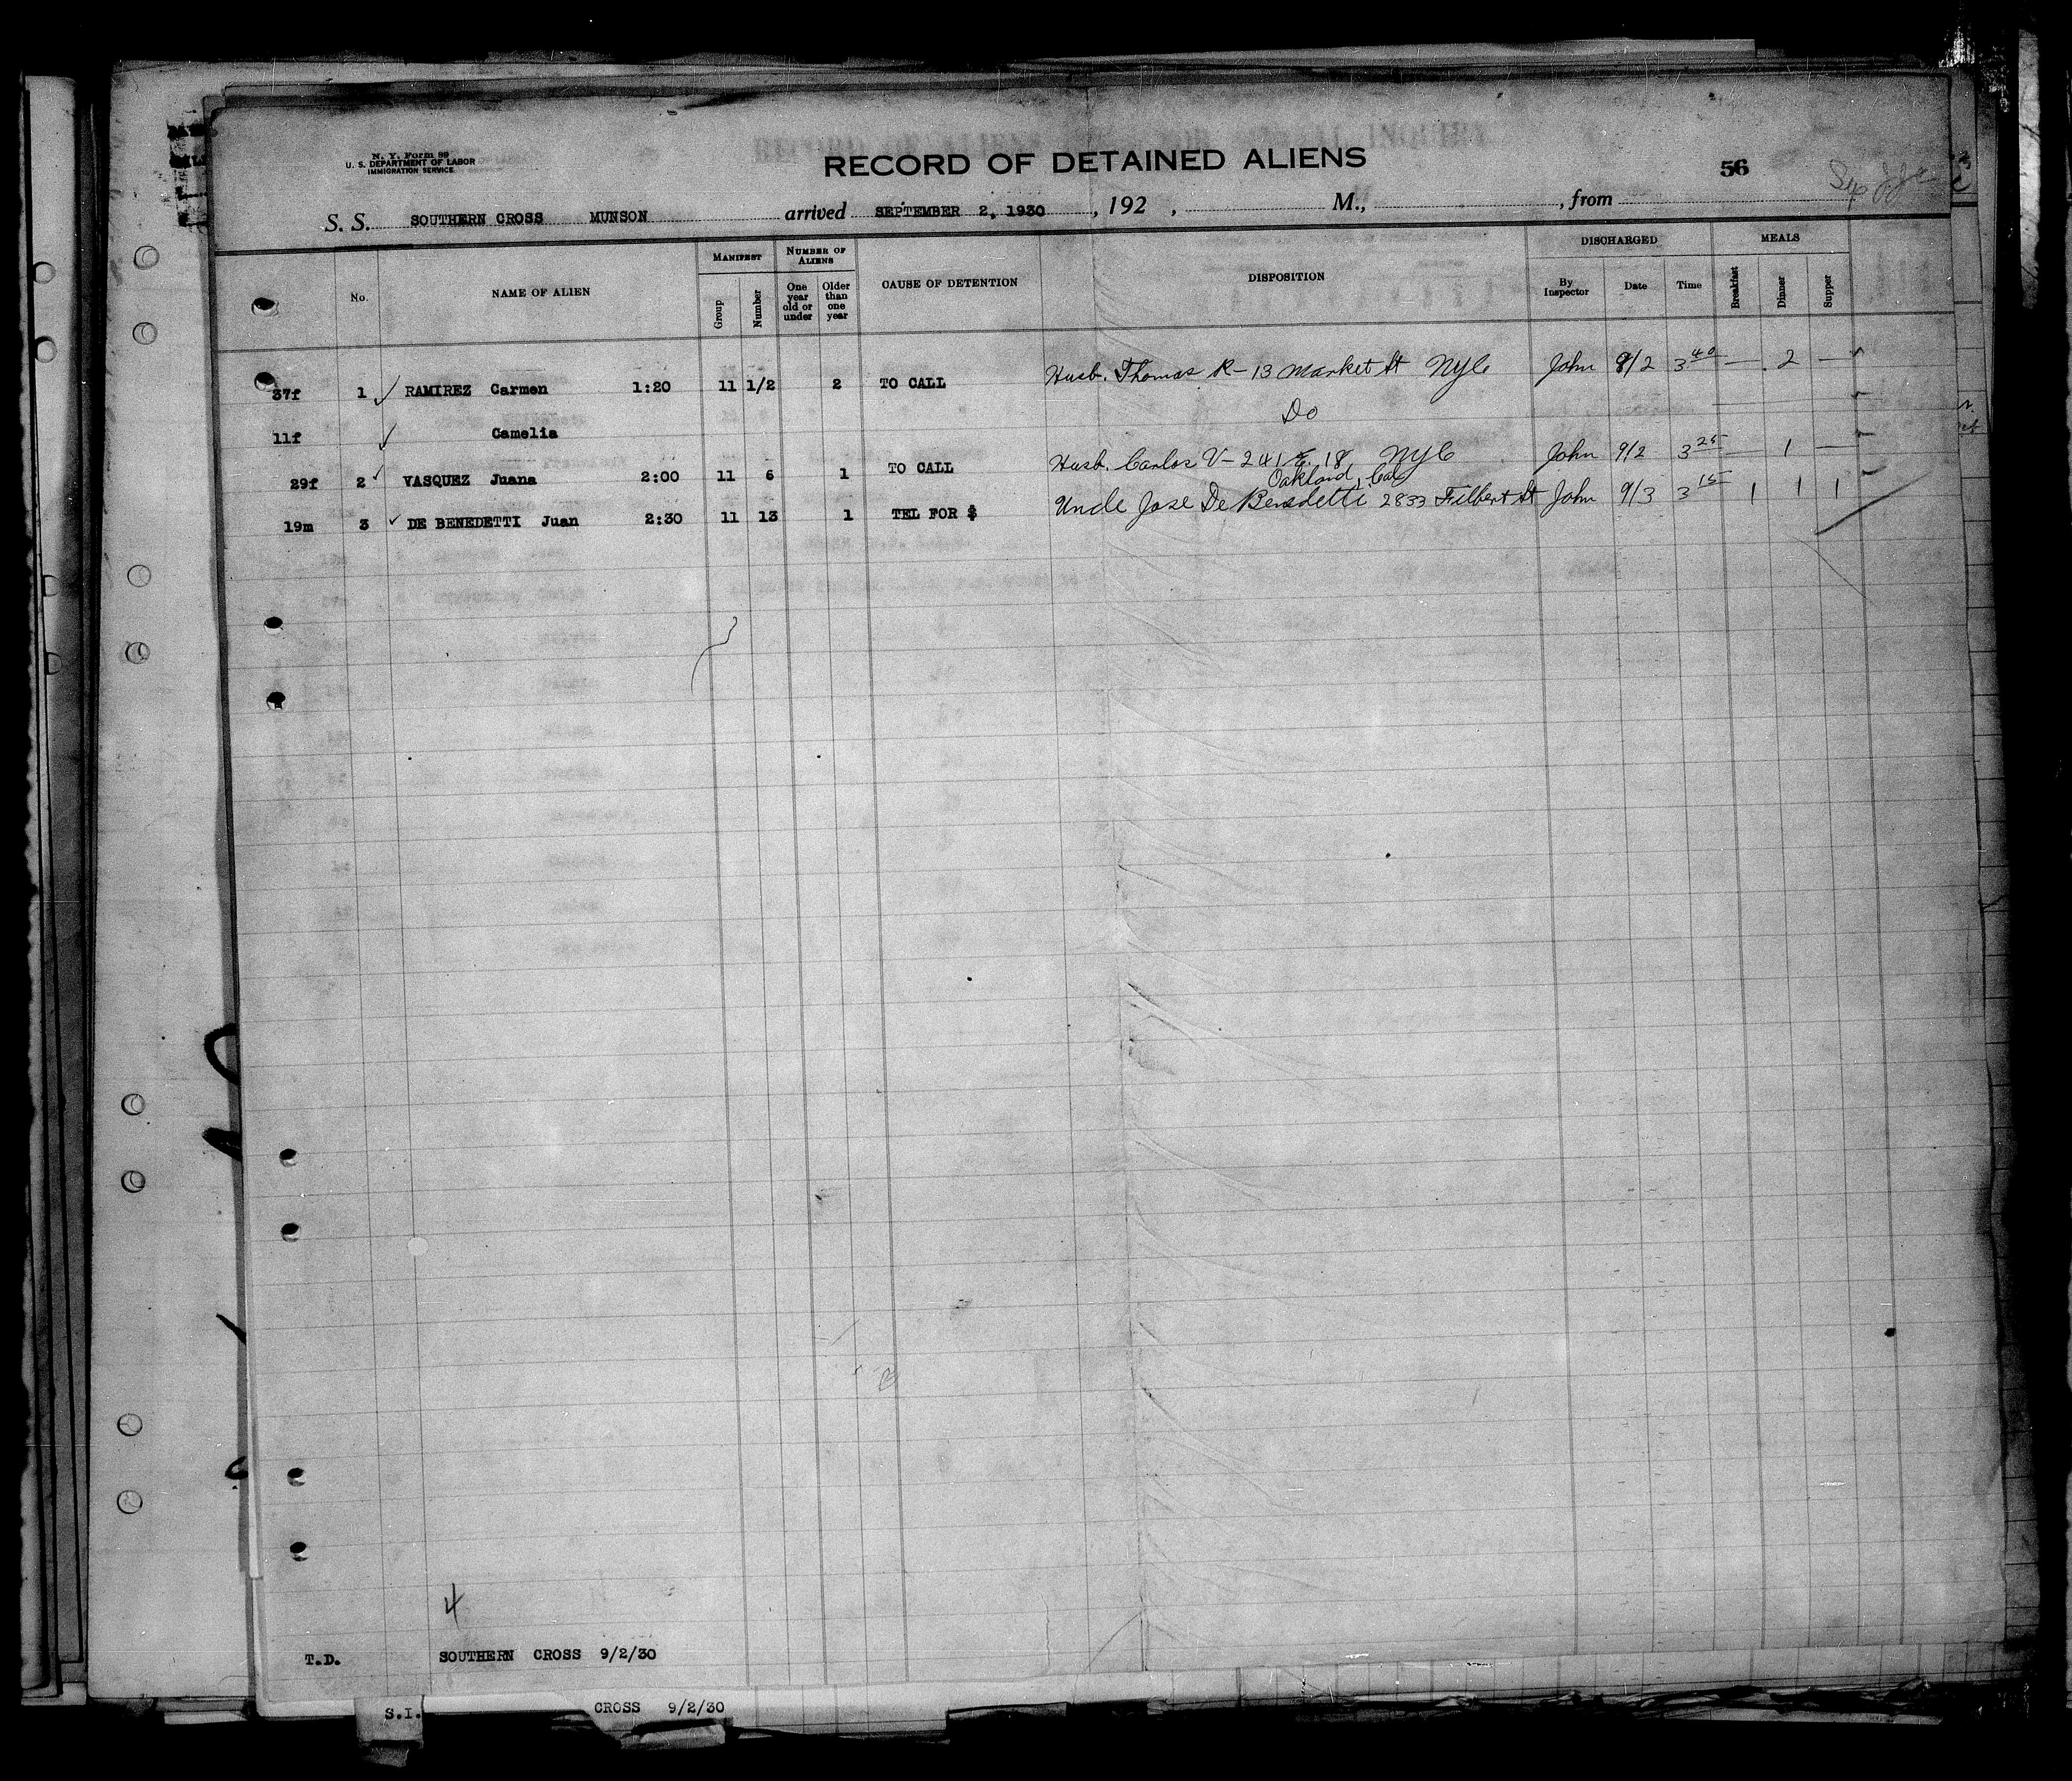 N. Y. Form 89
U. S. DEPARTMENT OF LABOR
IMMIGRATION SERVICE
RECORD OF DETAINED ALIENS
56
S. S. SOUTHERN CROSS MUNSON arrived SEPTEMBER 2, 1930, 192 , M., , from
No. NAME OF ALIEN MANIFEST Group Number NUMBER OF ALIENS One year old or under Older than one year CAUSE OF DETENTION DISPOSITION DISCHARGED By Inspector Date Time MEALS Breakfast Dinner Supper
37f 1 ✓ RAMIREZ Carmen 1:20 11 1/2 2 TO CALL Husb. Thomas R - 13 Market St NYC John 9/2 3 40 — 2 —
11f ✓ Camelia Do
29f 2 ✓ VASQUEZ Juana 2:00 11 6 1 TO CALL Husb. Carlos V - 241 E. 18 NYC John 9/2 3 25 — 1 —
Oakland, Cal
19m 3 ✓ DE BENEDETTI Juan 2:30 11 13 1 TEL FOR $ Uncle Jose De Benedetti 2833 Filbert St John 9/3 3 15 1 1 1
4
T.D. SOUTHERN CROSS 9/2/30
S.I. CROSS 9/2/30